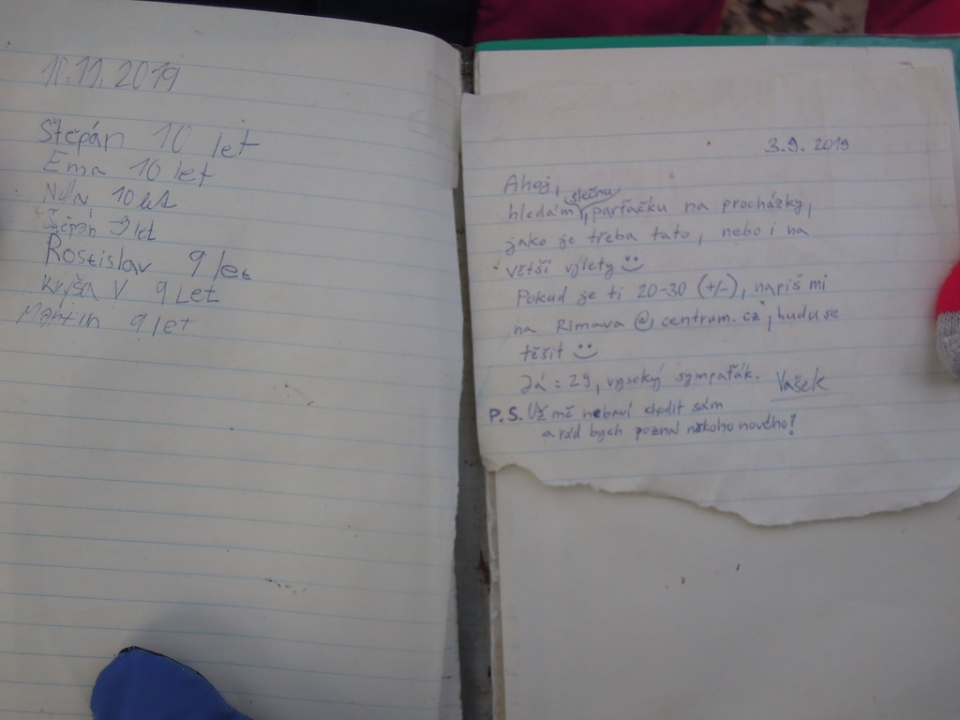 11.11.2019
Štěpán 10 let
Ema 10 let
10 let
Štěpán 9 let
Rostislav 9 let
V 9 Let
Martin 9 let
3.9. 2019
Ahoj,
hledám slečnu, parťačku na procházky,
jako je třeba tato, nebo i na
větší výlety
Pokud je ti 20-30 (+/-), napiš mi
na Rimava@centrum.cz, budu se
těšit
Já = 29, vysoký sympaťák. Vašek
P.S. Už mě nebaví chodit sám
a rád bych poznal někoho nového!